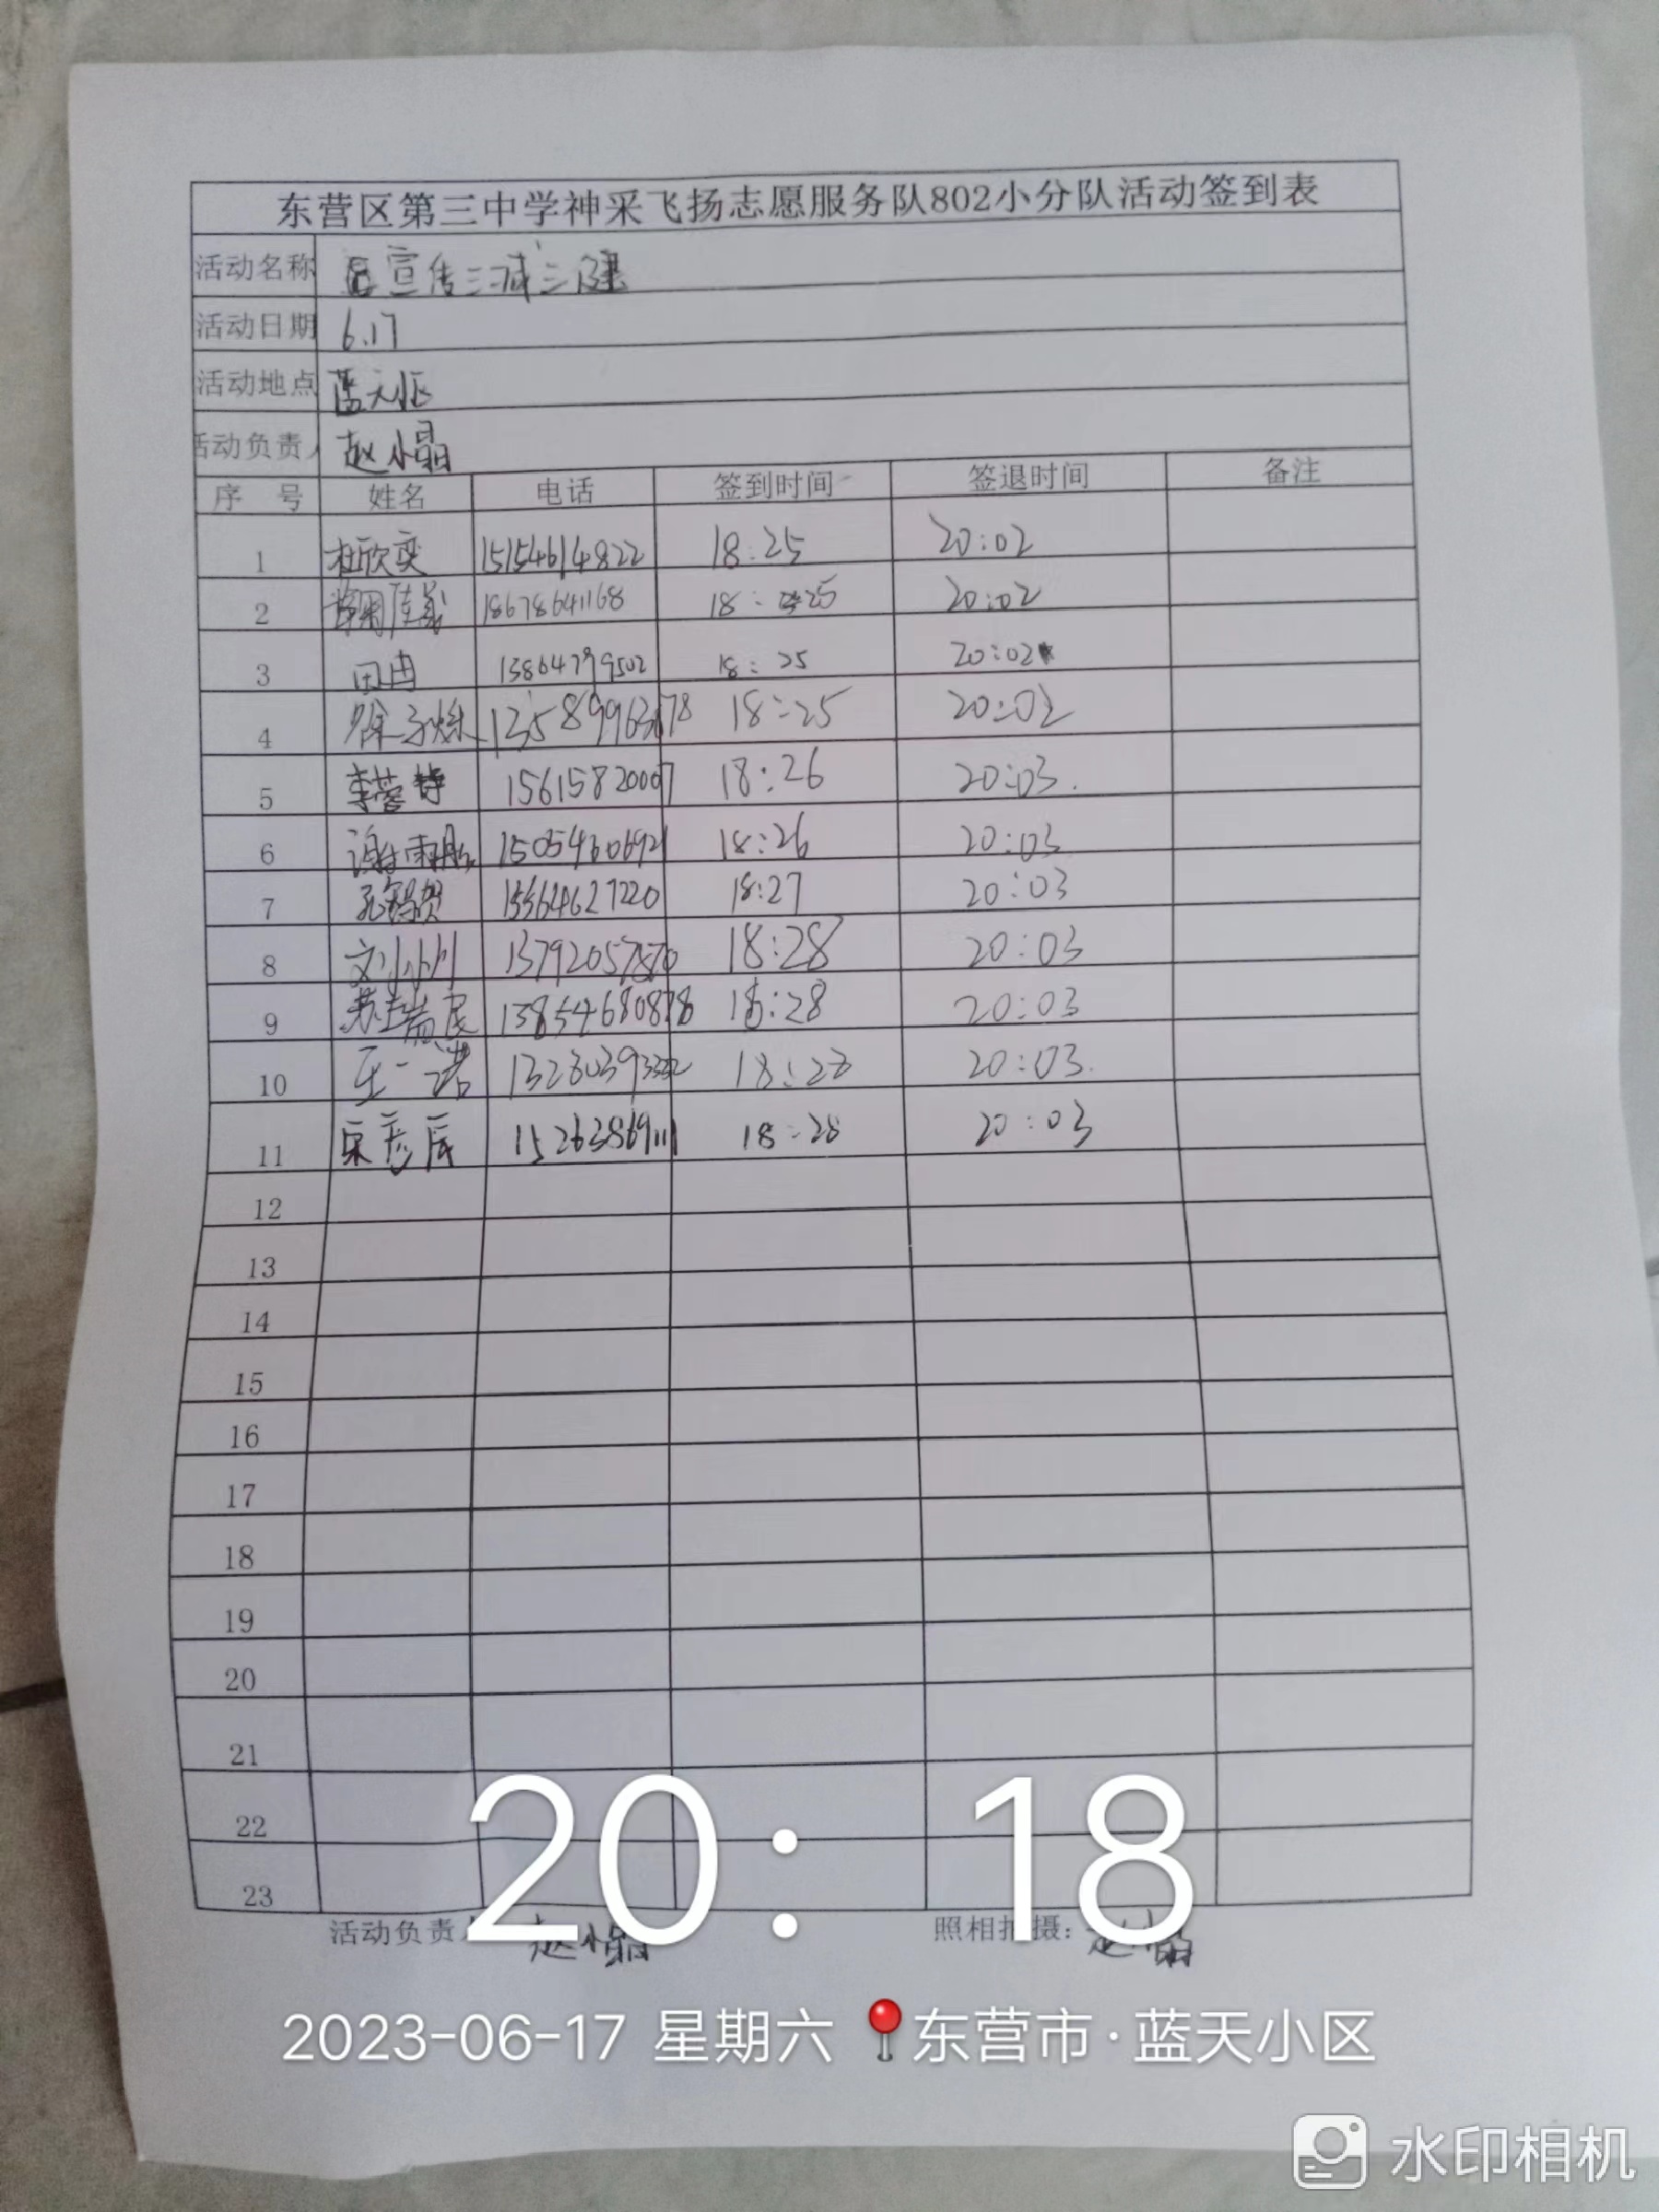 东营区第三中学神采飞扬志愿服务队802小分队活动签到表
活动名称 宣传三减三健
活动日期 6.17
活动地点 蓝天小区
活动负责人 赵小晶
序 号 姓名 电话 签到时间 签退时间 备注
1 杜欣奕 15154614822 18:25 20:02
2 18678641168 18:25 20:02
3 田冉 15864799502 18:25 20:02
4 徐子烁 13589963178 18:25 20:02
5 李蓉 15615820007 18:26 20:03
6 谢雨彤 15054606921 18:26 20:03
7 15564627220 18:27 20:03
8 18:28 20:03
9 苏瑞宸 18:28 20:03
10 王一诺 18:28 20:03
11 宋彦辰 15263869111 18:28 20:03
12
13
14
15
16
17
18
19
20
21
22
23
20:18
活动负责人 赵小晶 照相拍摄: 赵小晶
2023-06-17 星期六 东营市·蓝天小区
水印相机